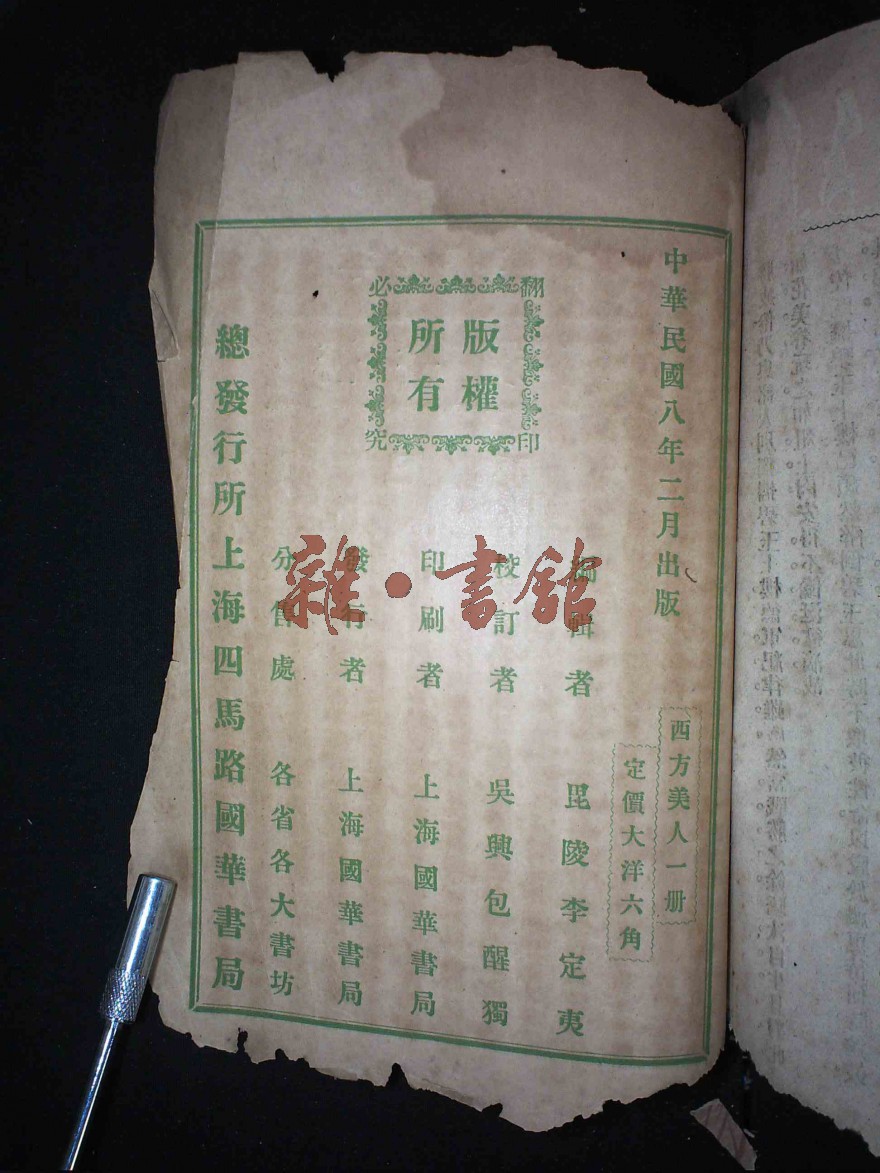 中華民國八年二月出版
西方美人一册
定價大洋六角
版權
所有
翻印必究
編輯者 毘陵李定夷
校訂者 吳興包醒獨
印刷者 上海國華書局
發行者 上海國華書局
分售處 各省各大書坊
總發行所上海四馬路國華書局
雜·書館